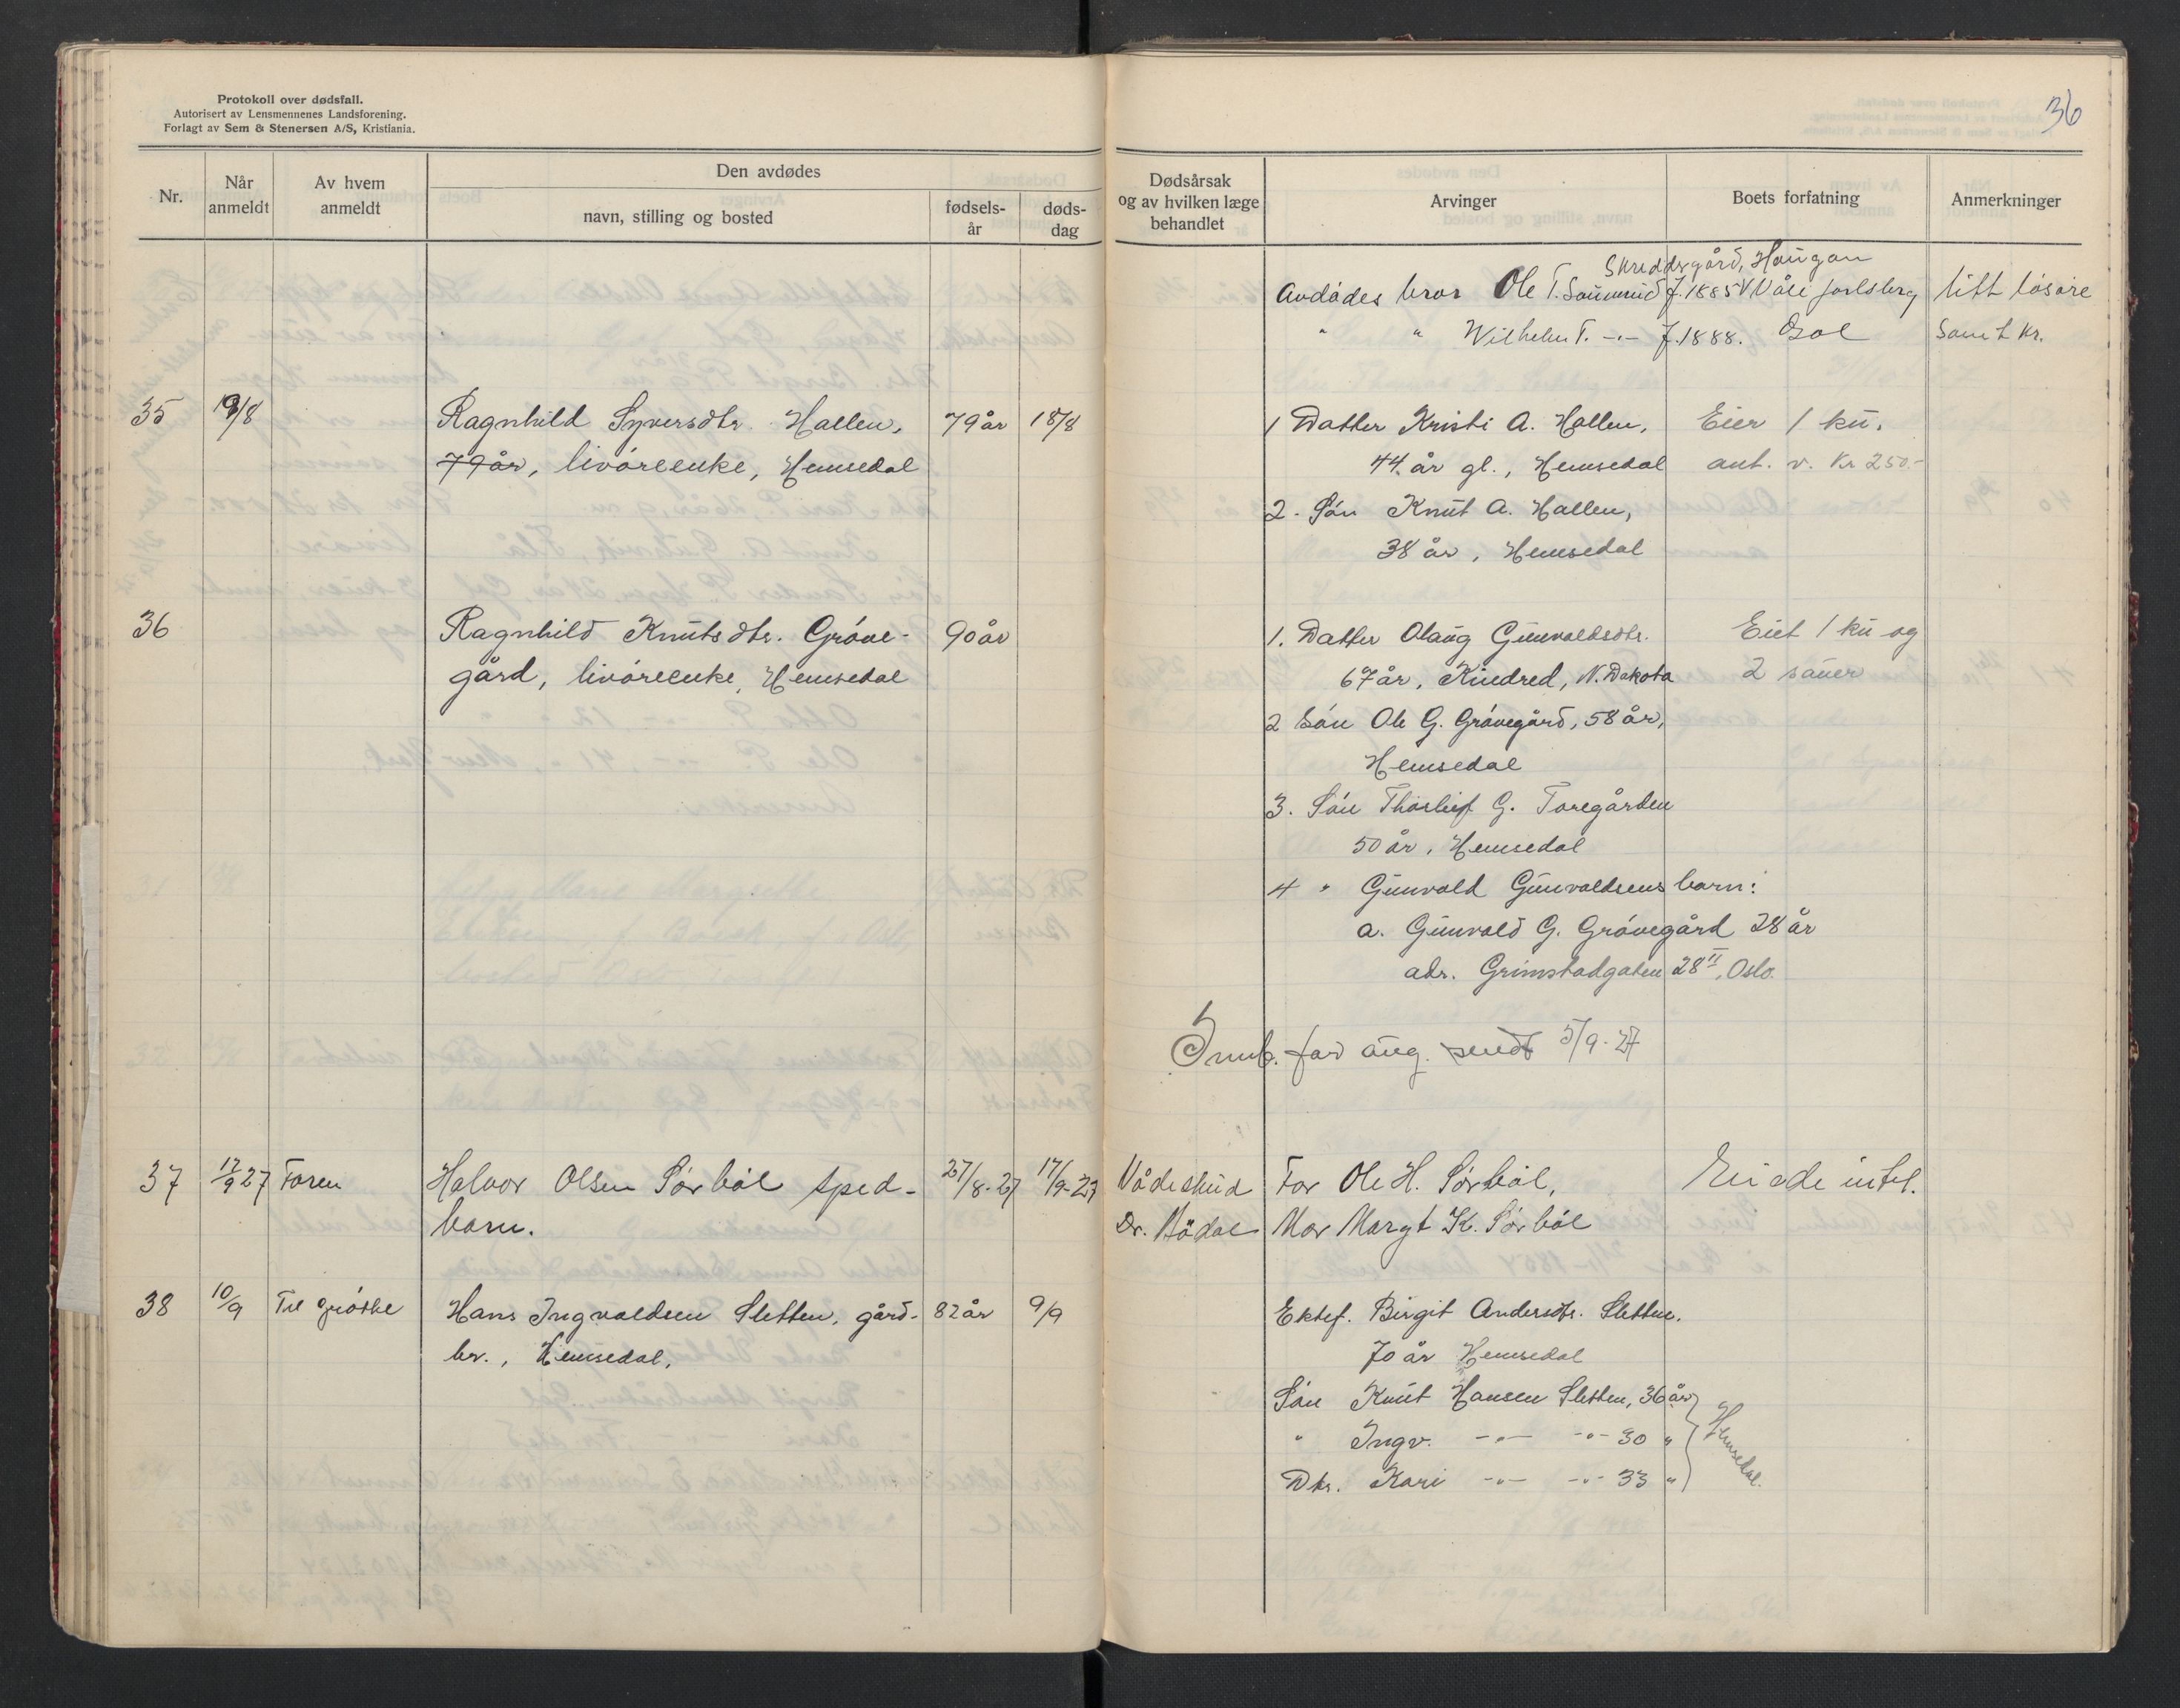 Protokoll over dødsfall.
Autorisert av Lensmennenes Landsforening.
Forlagt av Sem & Stenersen A/S, Kristiania.
36
Nr.
Når anmeldt
Av hvem anmeldt
Den avdødes
navn, stilling og bosted
fødsels-år
døds-dag
Dødsårsak og av hvilken læge behandlet
Arvinger
Boets forfatning
Anmerkninger
Skreddergård, Haugan
Avdødes bror Ole T. f. 1885 Våle Jarlsberg litt løsøre
" " Wilhelm T. -"- f. 1888. Gol samt kr.
35 19/8 Ragnhild Syversdtr. Hallen, 79 år 18/8 1 Datter Kristi A. Hallen, Eier 1 ku.
79 år, livøreenke, Hemsedal 44 år gl., Hemsedal ant. v. Kr 250.-
2. Søn Knut A. Hallen,
38 år, Hemsedal
36 Ragnhild Knutsdtr. Grøve- 90 år 1. Datter Olaug Gunvaldsdtr. Eiet 1 ku og
gård, livøreenke, Hemsedal 67 år, Kindred, N. Dakota 2 sauer
2 Søn Ole G. Grøvegård, 58 år,
Hemsedal
3. Søn Thorleif G. Toregården
50 år, Hemsedal
4 " Gunvald Gunvaldsens barn:
a. Gunvald G. Grøvegård 28 år
adr. Grimstadgaten 28 II, Oslo.
for aug. sendt 5/9-27
37 17/9 27 Faren Halvor Olsen Sørbøl sped- 27/8-27 17/9-27 Vådeskud Far Ole H. Sørbøl, Eiede intet.
barn. Dr. Mor Margt K. Sørbøl
38 10/9 Til grøtte Hans Ingvaldsen Sletten, gård- 82 år 9/9 Ektef. Birgit Andersdtr. Sletten.
br., Hemsedal, 70 år Hemsedal
Søn Knut Hansen Sletten, 36 år
" Ingv. -"- -"- 30 " Hemsedal.
Dtr. Kari -"- -"- 33 "